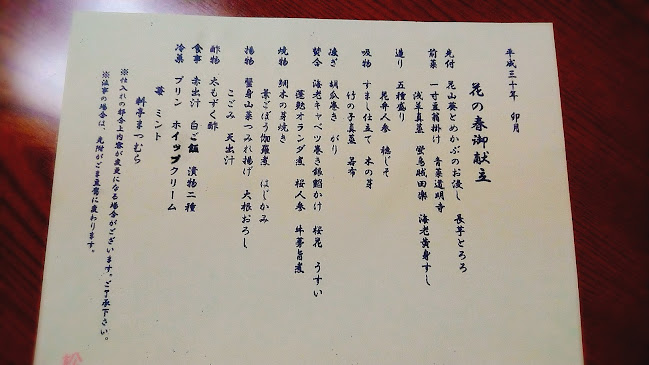 平成三十年 卯月
花の春御献立
先付 花山葵とめかぶのお浸し 長芋とろろ
前菜 一寸豆翁掛け 青菜道明寺
浅草蒸し 蛍烏賊田楽 海老黄身すし
造り 五種盛り
花弁人参 穂じそ
吸物 すまし仕立て 木の芽
竹の子真蒸 若布
凌ぎ 胡瓜巻き がり
焚合 海老キャベツ巻き銀餡かけ 桜花 うすい
蓮麩オランダ煮 桜人参 牛蒡旨煮
焼物 鯛木の芽焼き
葉ごぼう伽羅煮 はじかみ
揚物 蟹身山菜つみれ揚げ 大根おろし
こごみ 天出汁
酢物 太もずく酢
食事 赤出汁 白ご飯 漬物二種
冷菓 プリン ホイップクリーム
苺 ミント
料亭まつむら
※仕入れの都合上内容が変更になる場合がございます。ご了承下さい。
※法事の場合は、先附がごま豆腐に変わります。